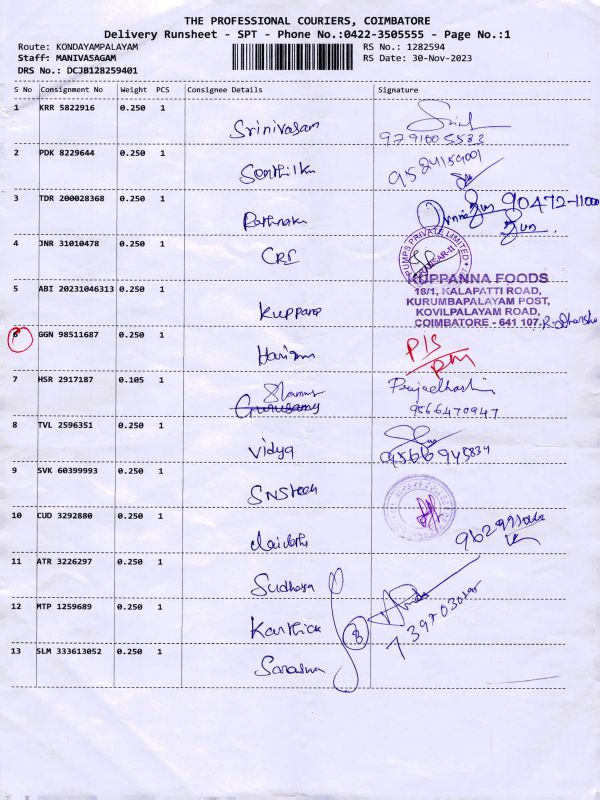 THE PROFESSIONAL COURIERS, COIMBATORE
Delivery Runsheet - SPT - Phone No.:0422-3505555 - Page No.:1
Route: KONDAYAMPALAYAM
RS No.: 1282594
Staff: MANIVASAGAM
RS Date: 30-Nov-2023
DRS No.: DCJB128259401
S No Consignment No Weight PCS Consignee Details Signature
1 KRR 5822916 0.250 1
Srinivasan
9791005533
2 PDK 8229644 0.250 1
Senthilku
9524159001
3 TDR 200028368 0.250 1
Rathnaku
90472-11000
4 JNR 31010478 0.250 1
CRI
PUMPS PRIVATE LIMITED
5 ABI 20231046313 0.250 1
Kuppana
KUPPANNA FOODS
18/1, KALAPATTI ROAD,
KURUMBAPALAYAM POST,
KOVILPALAYAM ROAD,
COIMBATORE - 641 107.
6 GGN 98511687 0.250 1
P/S
7 HSR 2917187 0.105 1
Gurusamy
9566470947
8 TVL 2596351 0.250 1
Vidya
9566945834
9 SVK 60399993 0.250 1
10 CUD 3292880 0.250 1
11 ATR 3226297 0.250 1
Sudhaya
12 MTP 1259689 0.250 1
Karthick
8
13 SLM 333613052 0.250 1